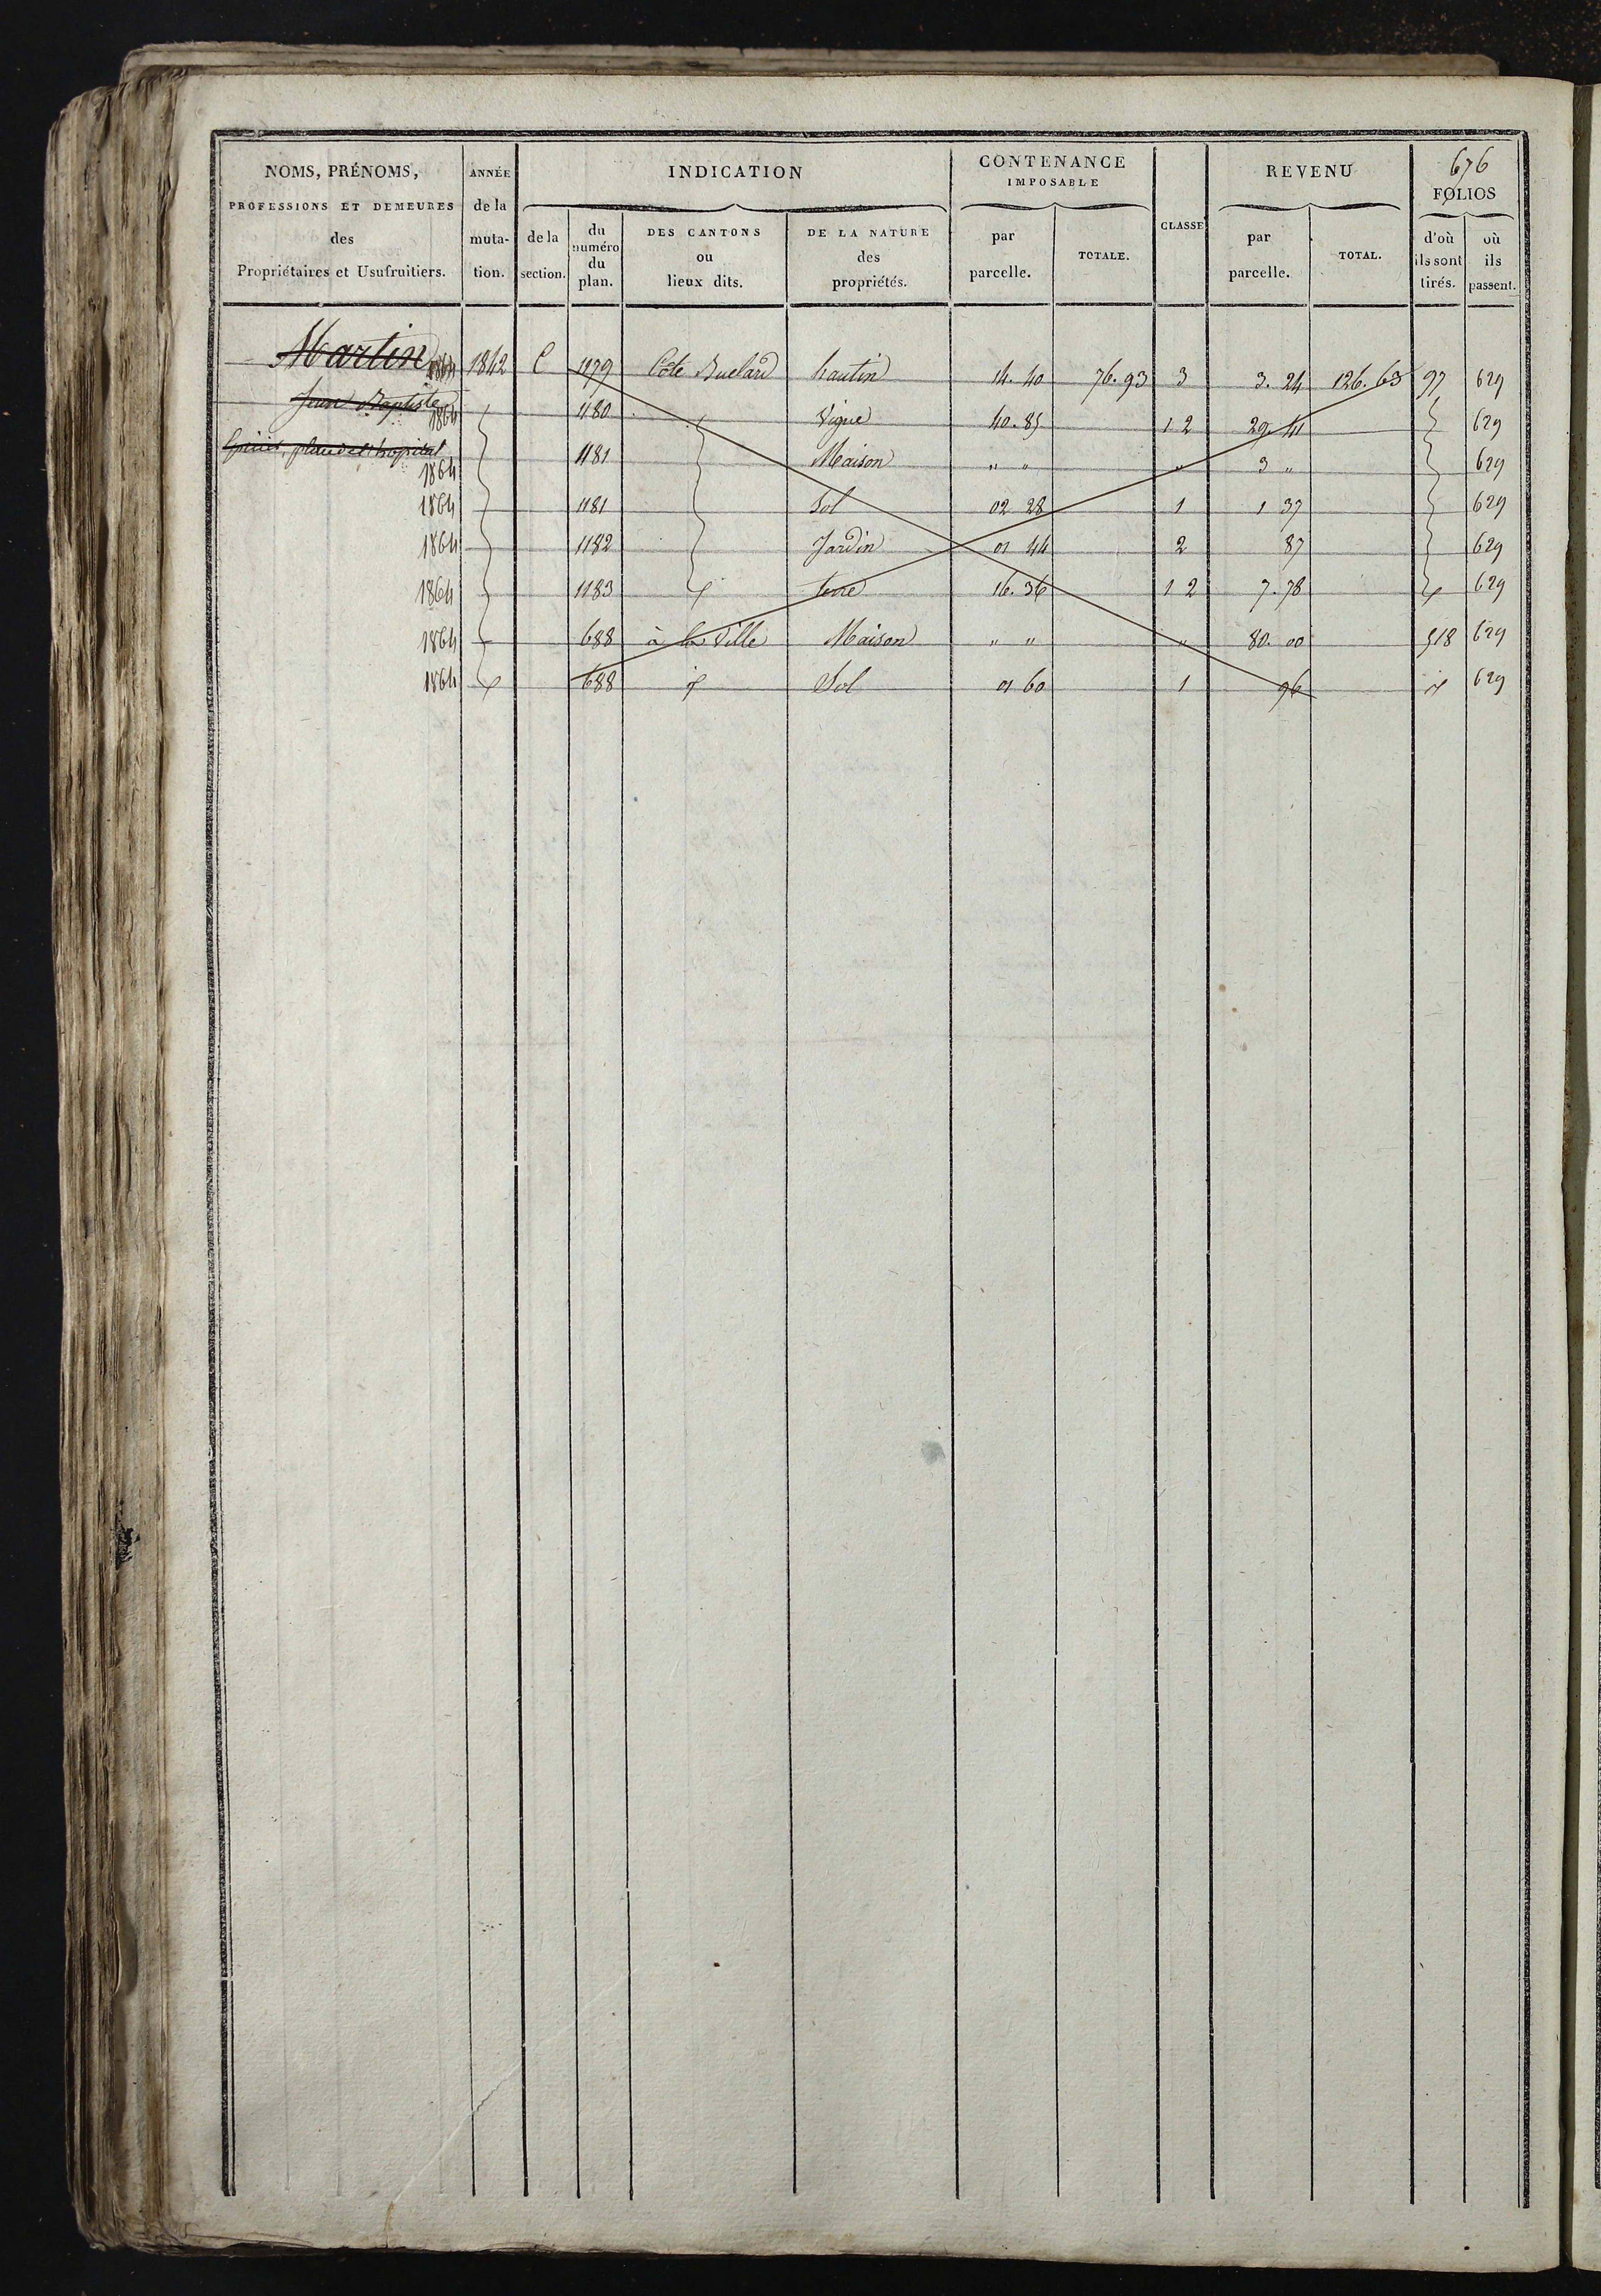 676
NOMS, PRÉNOMS, PROFESSIONS ET DEMEURES des Propriétaires et Usufruitiers.
ANNÉE de la muta- tion.
INDICATION
de la section.
du numéro du plan.
DES CANTONS ou lieux dits.
DE LA NATURE des propriétés.
CONTENANCE IMPOSABLE
par parcelle.
TOTALE.
CLASSE
REVENU
par parcelle.
TOTAL.
FOLIOS
d'où ils sont tirés.
où ils passent.
Martin 1864 1842 C 1179 Côte hautin 14. 40 76. 93 3 3. 24 126. 63 97 629
Jean Baptiste 1864 1180 Vigne 40. 85 1 2 29. 41 629
place de l'hopital 1864 1181 Maison " " " 3 " 629
1864 1181 Sol 02 28 1 1 37 629
1864 1182 Jardin 01 44 2 87 629
1864 1183 terre 16. 36 1 2 7. 78 629
1864 688 à la Ville Maison " " " 80. 00 518 629
1864 688 Sol 01 60 1 96 629